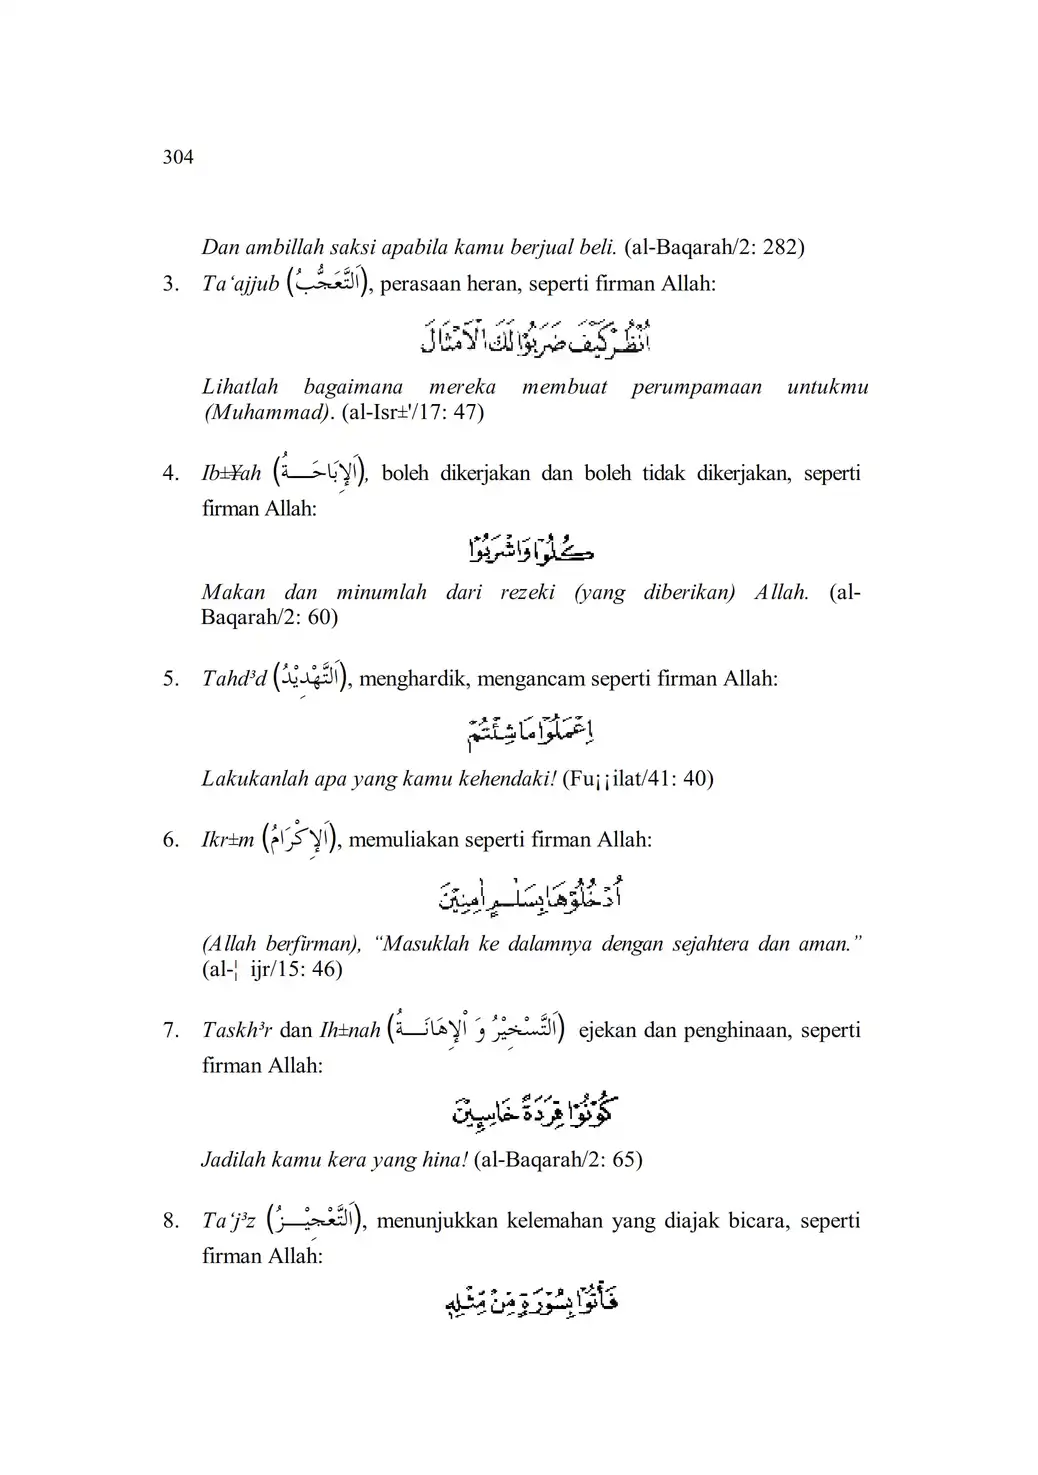 304
Dan ambillah saksi apabila kamu berjual beli. (al-Baqarah/2: 282)
3. Ta‘ajjub (اَلتَّعَجُّبُ), perasaan heran, seperti firman Allah:
اُنْظُرْ كَيْفَ ضَرَبُوْا لَكَ الْاَمْثَالَ
Lihatlah bagaimana mereka membuat perumpamaan untukmu
(Muhammad). (al-Isr±'/17: 47)
4. Ib±¥ah (اَلإِبَاحَـــةُ), boleh dikerjakan dan boleh tidak dikerjakan, seperti
firman Allah:
كُلُوْا وَاشْرَبُوْا
Makan dan minumlah dari rezeki (yang diberikan) Allah. (al-
Baqarah/2: 60)
5. Tahd³d (اَلتَّهْدِيْدُ), menghardik, mengancam seperti firman Allah:
اِعْمَلُوْا مَا شِئْتُمْ
Lakukanlah apa yang kamu kehendaki! (Fu¡¡ilat/41: 40)
6. Ikr±m (اَلإِكْرَامُ), memuliakan seperti firman Allah:
اُدْخُلُوْهَا بِسَلٰمٍ اٰمِنِيْنَ
(Allah berfirman), “Masuklah ke dalamnya dengan sejahtera dan aman.”
(al-¦ ijr/15: 46)
7. Taskh³r dan Ih±nah (اَلتَّسْخِيْرُ وَ اْلإِهَانَـــةُ) ejekan dan penghinaan, seperti
firman Allah:
كُوْنُوْا قِرَدَةً خَاسِـِٕيْنَ
Jadilah kamu kera yang hina! (al-Baqarah/2: 65)
8. Ta‘j³z (اَلتَّعْجِيْـــزُ), menunjukkan kelemahan yang diajak bicara, seperti
firman Allah:
فَأْتُوْا بِسُوْرَةٍ مِّنْ مِّثْلِهٖ